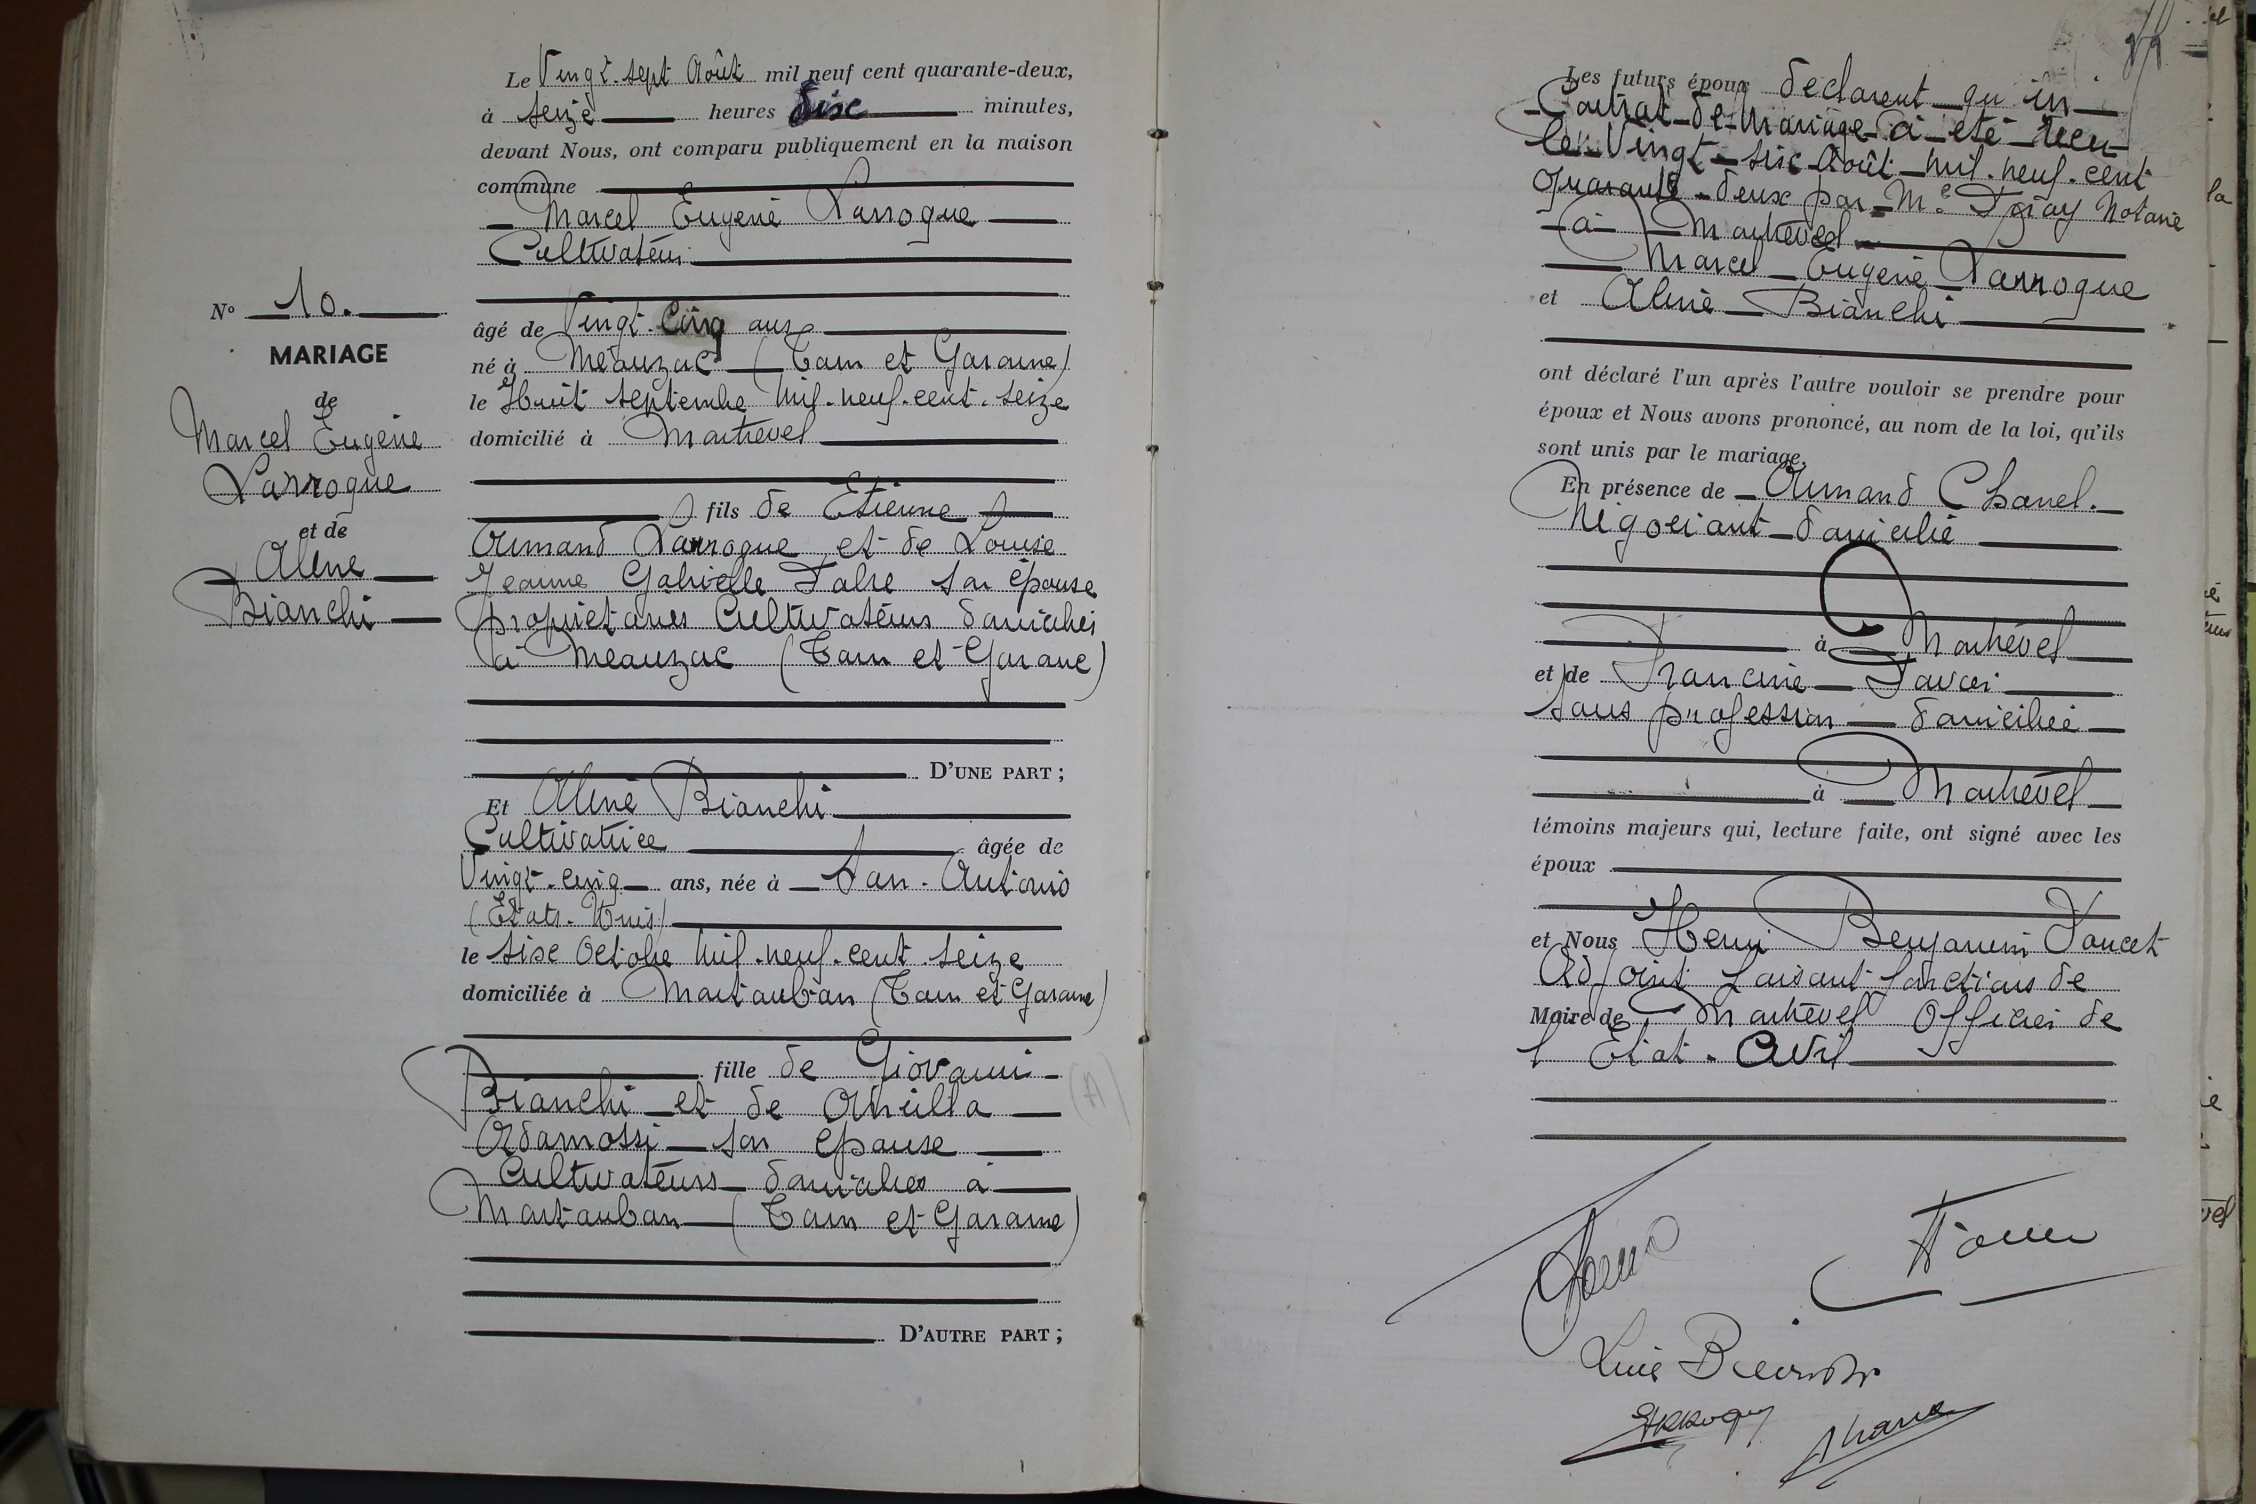 Le Vingt-sept Août mil neuf cent quarante-deux,
à seize heures dix minutes,
devant Nous, ont comparu publiquement en la maison
commune
Marcel Eugène Larroque
Cultivateur
âgé de Vingt-Cinq ans
né à Meauzac (Tarn et Garonne)
le Huit septembre mil-neuf-cent-seize
domicilié à Montrevel
fils de Etienne
Armand Larroque et de Louise
Jeanne Gabrielle Fabre son épouse
propriétaires Cultivateurs domiciliés
à Meauzac (Tarn et Garonne)
D'UNE PART ;
Et Aline Bianchi
Cultivatrice âgée de
Vingt-cinq ans, née à San-Antonio
(Etats-Unis)
le six Octobre mil-neuf-cent-seize
domiciliée à Montauban (Tarn et Garonne)
fille de Giovanni
Bianchi et de
son épouse
Cultivateurs domiciliés à
Montauban (Tarn et Garonne)
D'AUTRE PART ;
N° 10.
MARIAGE
de
Marcel Eugène
Larroque
et de
Aline
Bianchi
Les futurs époux déclarent qu'un
Contrat de Mariage a été reçu
le Vingt-six Août mil-neuf-cent
Quarante-deux par Me Notaire
à Montrevel
Marcel Eugène Larroque
et Aline Bianchi
ont déclaré l'un après l'autre vouloir se prendre pour
époux et Nous avons prononcé, au nom de la loi, qu'ils
sont unis par le mariage.
En présence de Armand Chanel.
Négociant domicilié
à Montrevel
et de Francine
sans profession domiciliée
à Montrevel
témoins majeurs qui, lecture faite, ont signé avec les
époux
et Nous Henri Benjamin
Adjoint faisant fonctions de
Maire de Montrevel Officier de
l'Etat-Civil